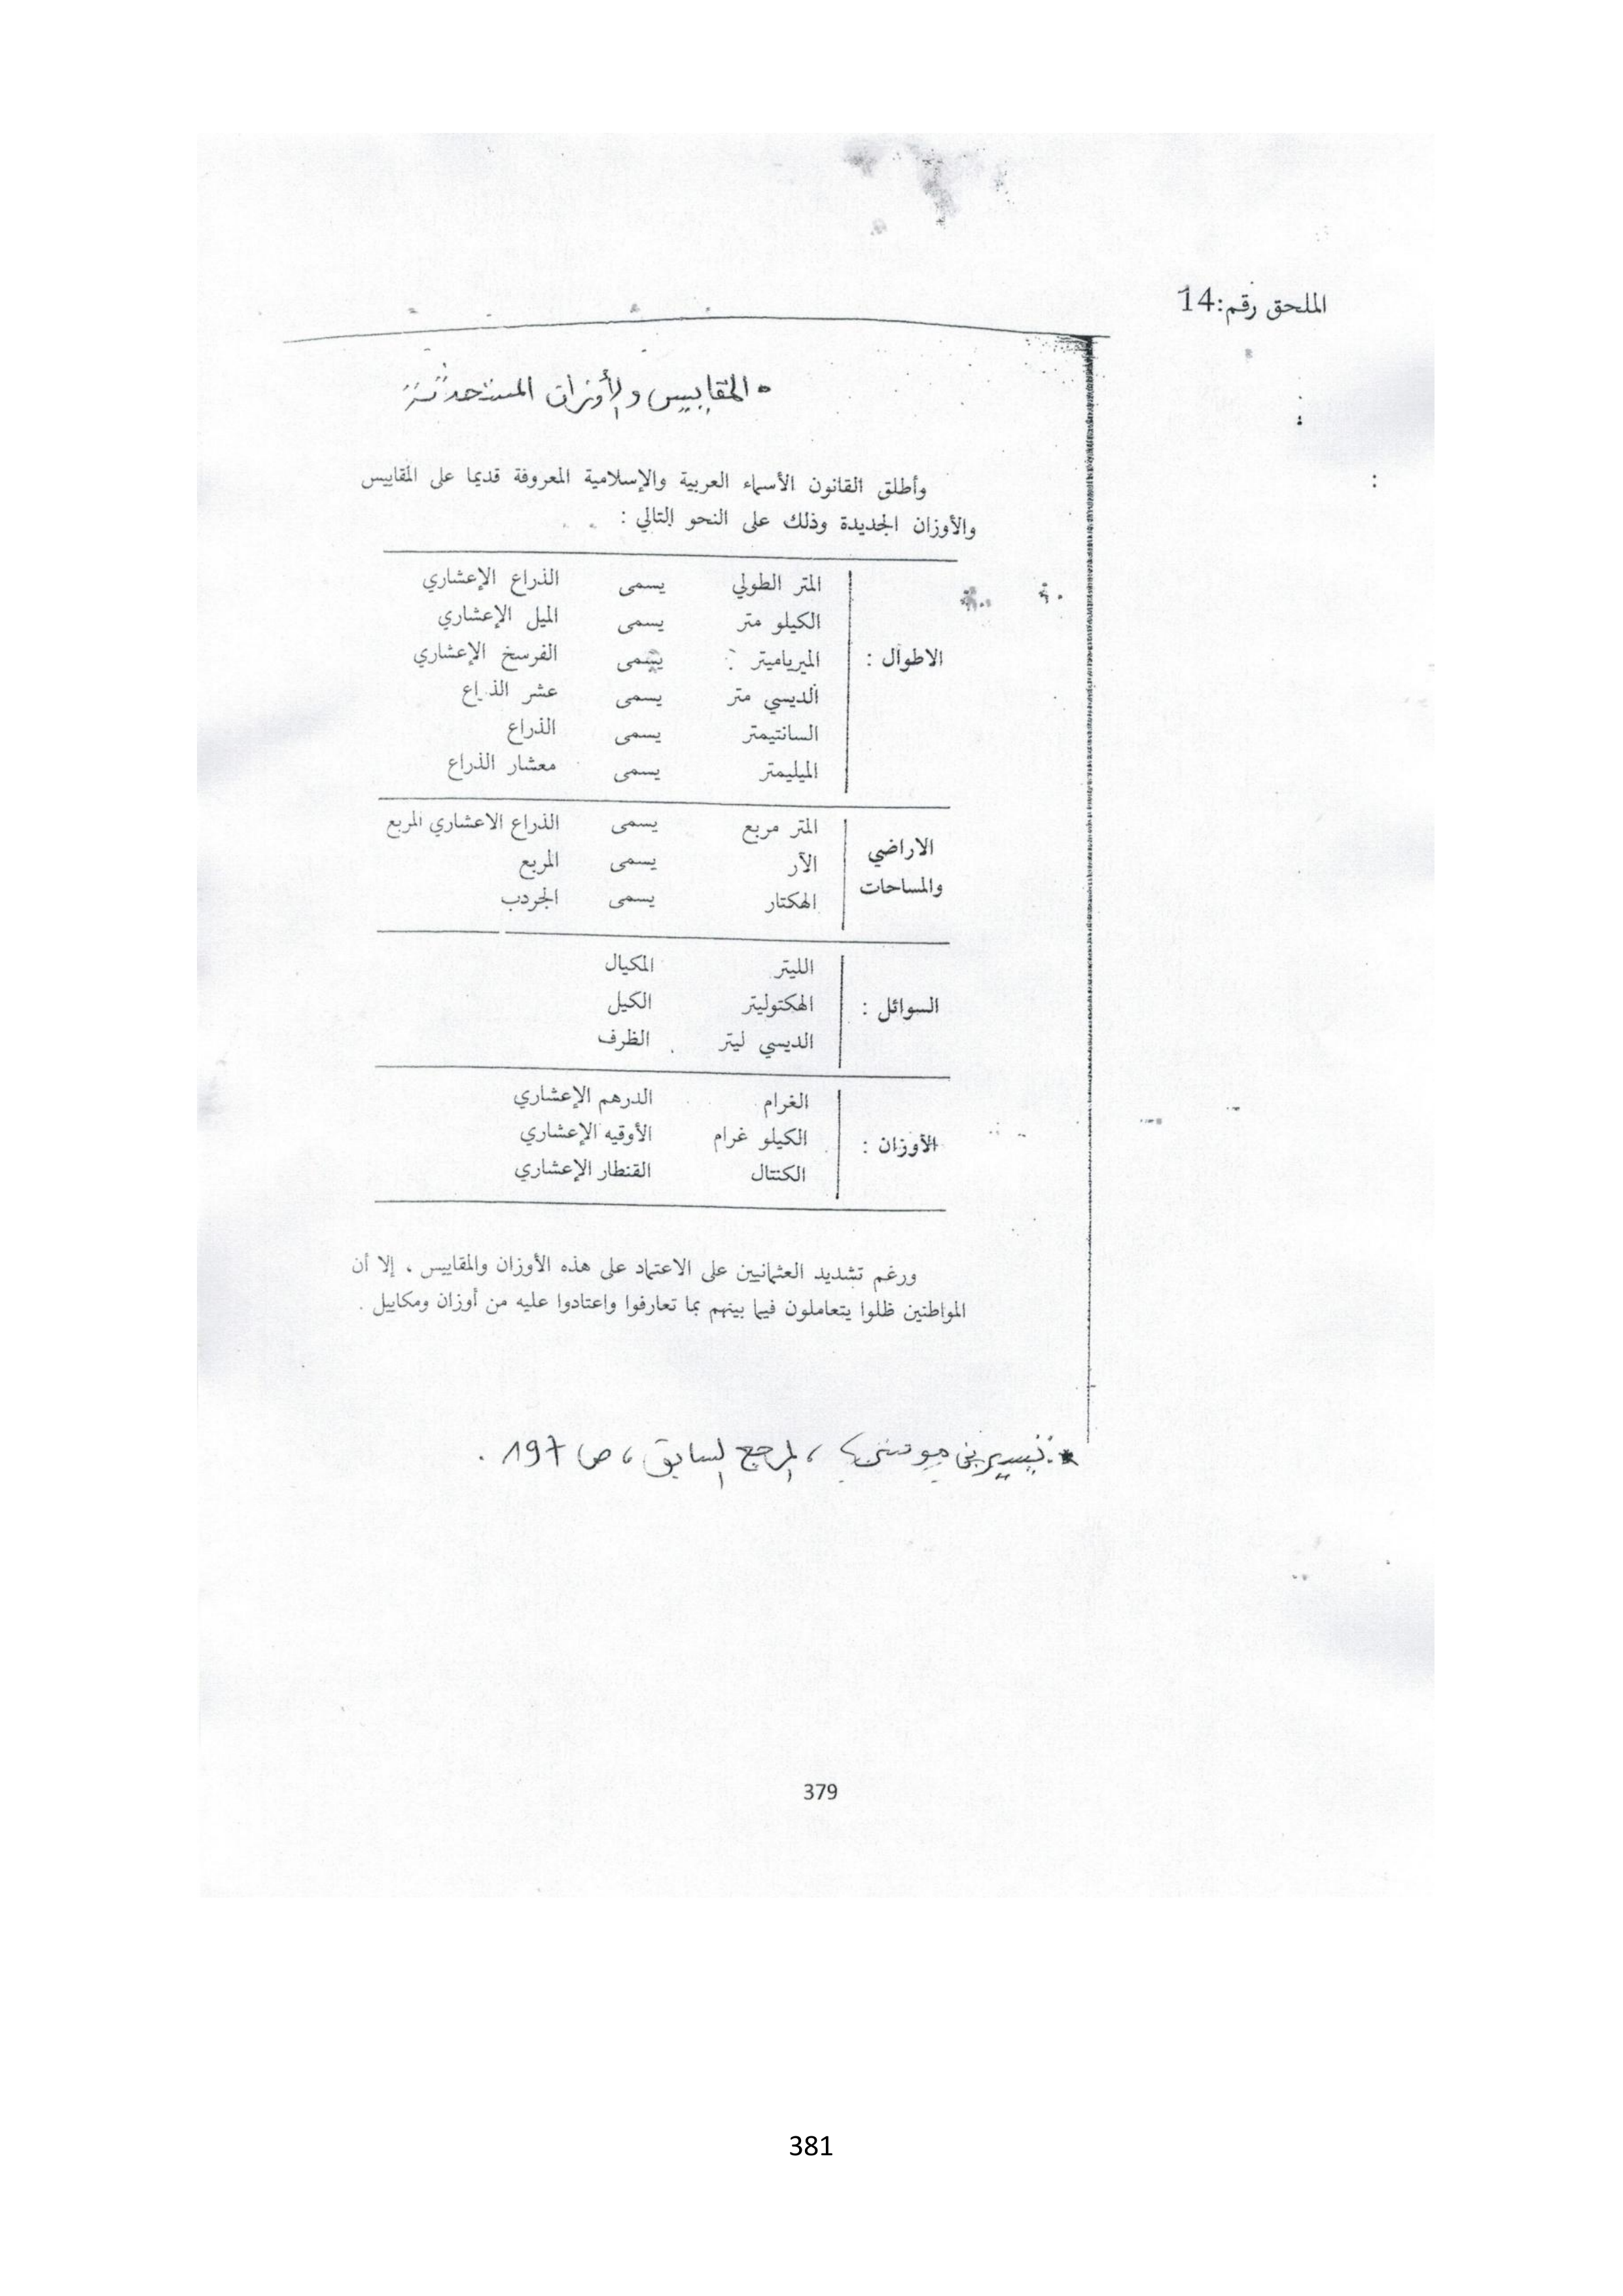 الملحق رقم:14
المقاييس والأوزان المستحدثة
وأطلق القانون الأسماء العربية والإسلامية المعروفة قديما على المقاييس
والأوزان الجديدة وذلك على النحو التالي :
الاطوال :
المتر الطولي يسمى الذراع الإعشاري
الكيلو متر يسمى الميل الإعشاري
الميرياميتر يسمى الفرسخ الإعشاري
الديسي متر يسمى عشر الذراع
السانتيمتر يسمى الذراع
الميليمتر يسمى معشار الذراع
الاراضي
والمساحات
المتر مربع يسمى الذراع الاعشاري المربع
الآر يسمى المربع
الهكتار يسمى الجردب
السوائل :
الليتر المكيال
الهكتوليتر الكيل
الديسي ليتر الظرف
الأوزان :
الغرام الدرهم الإعشاري
الكيلو غرام الأوقيه الإعشاري
الكنتال القنطار الإعشاري
ورغم تشديد العثمانيين على الاعتماد على هذه الأوزان والمقاييس ، إلا أن
المواطنين ظلوا يتعاملون فيما بينهم بما تعارفوا واعتادوا عليه من أوزان ومكاييل .
* تيسير بن موسى ، المرجع السابق ، ص 197 .
379
381